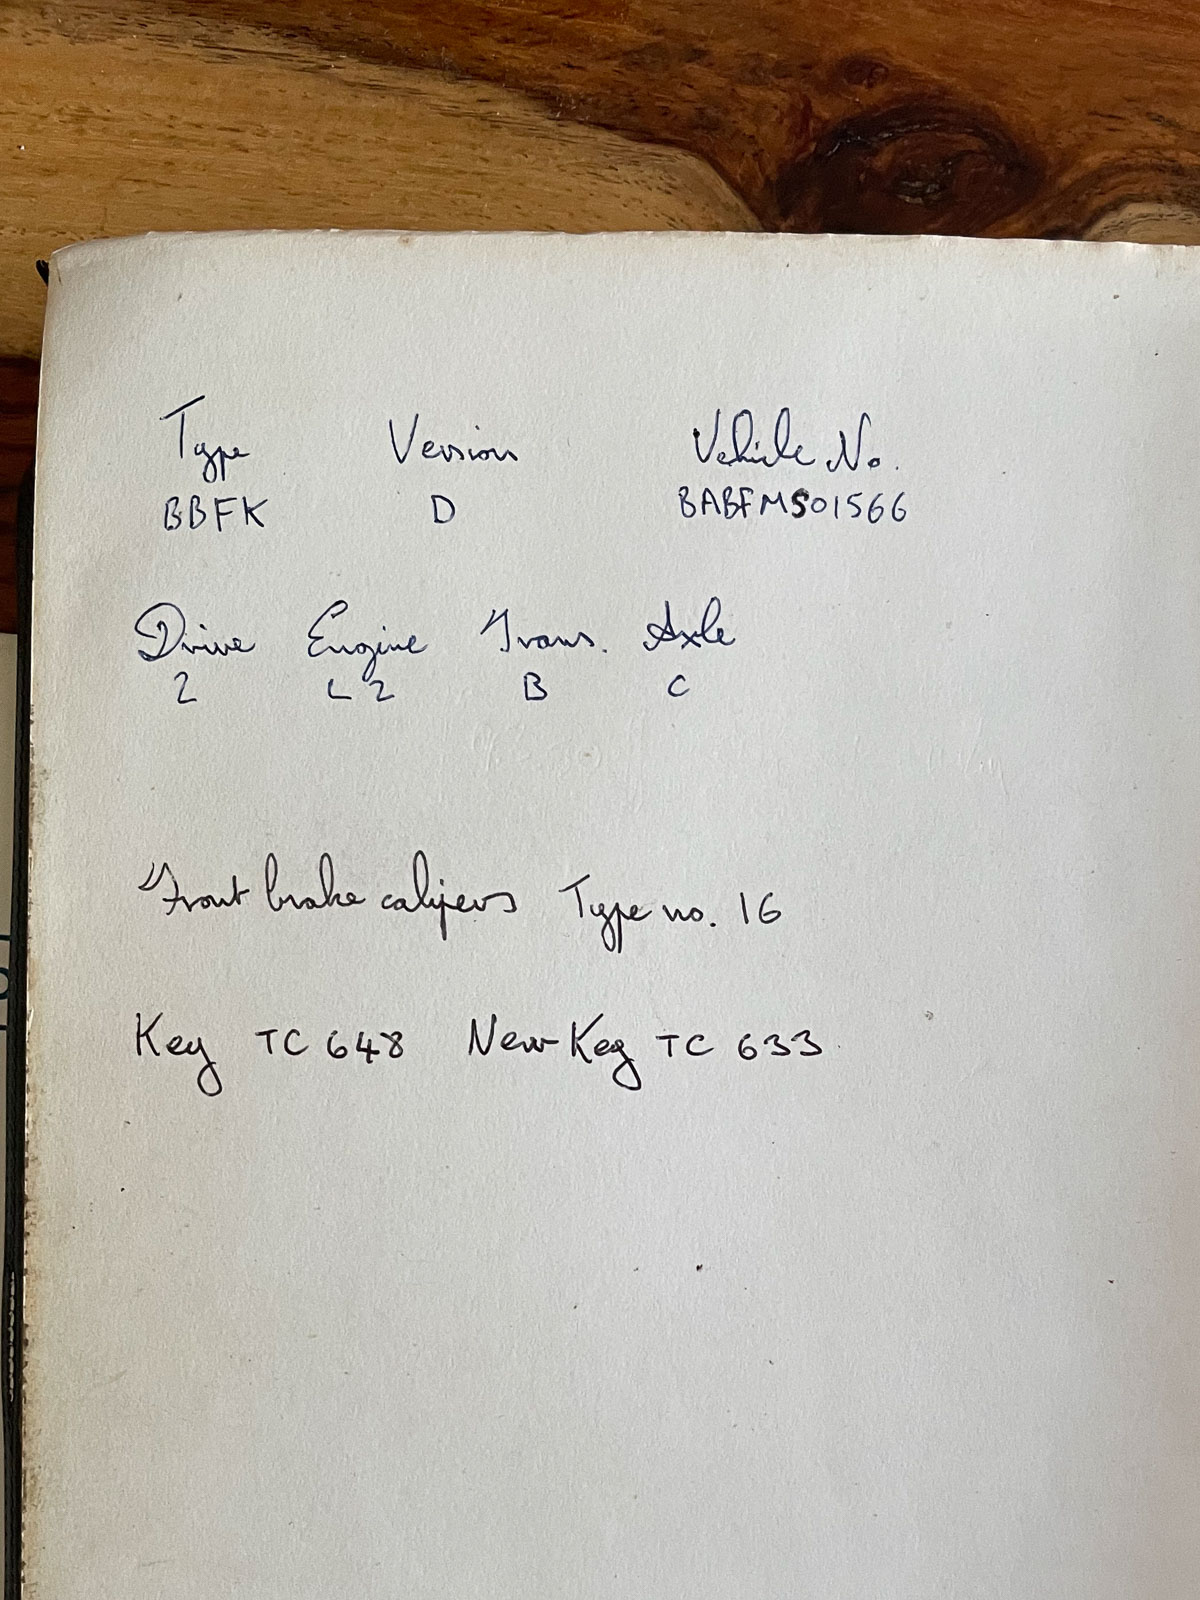 Type Version Vehicle No.
BBFK D BABFMS01566
Drive Engine Trans. Axle
2 L2 B C
Front brake calipers Type no. 16
Key TC 648 New Key TC 633